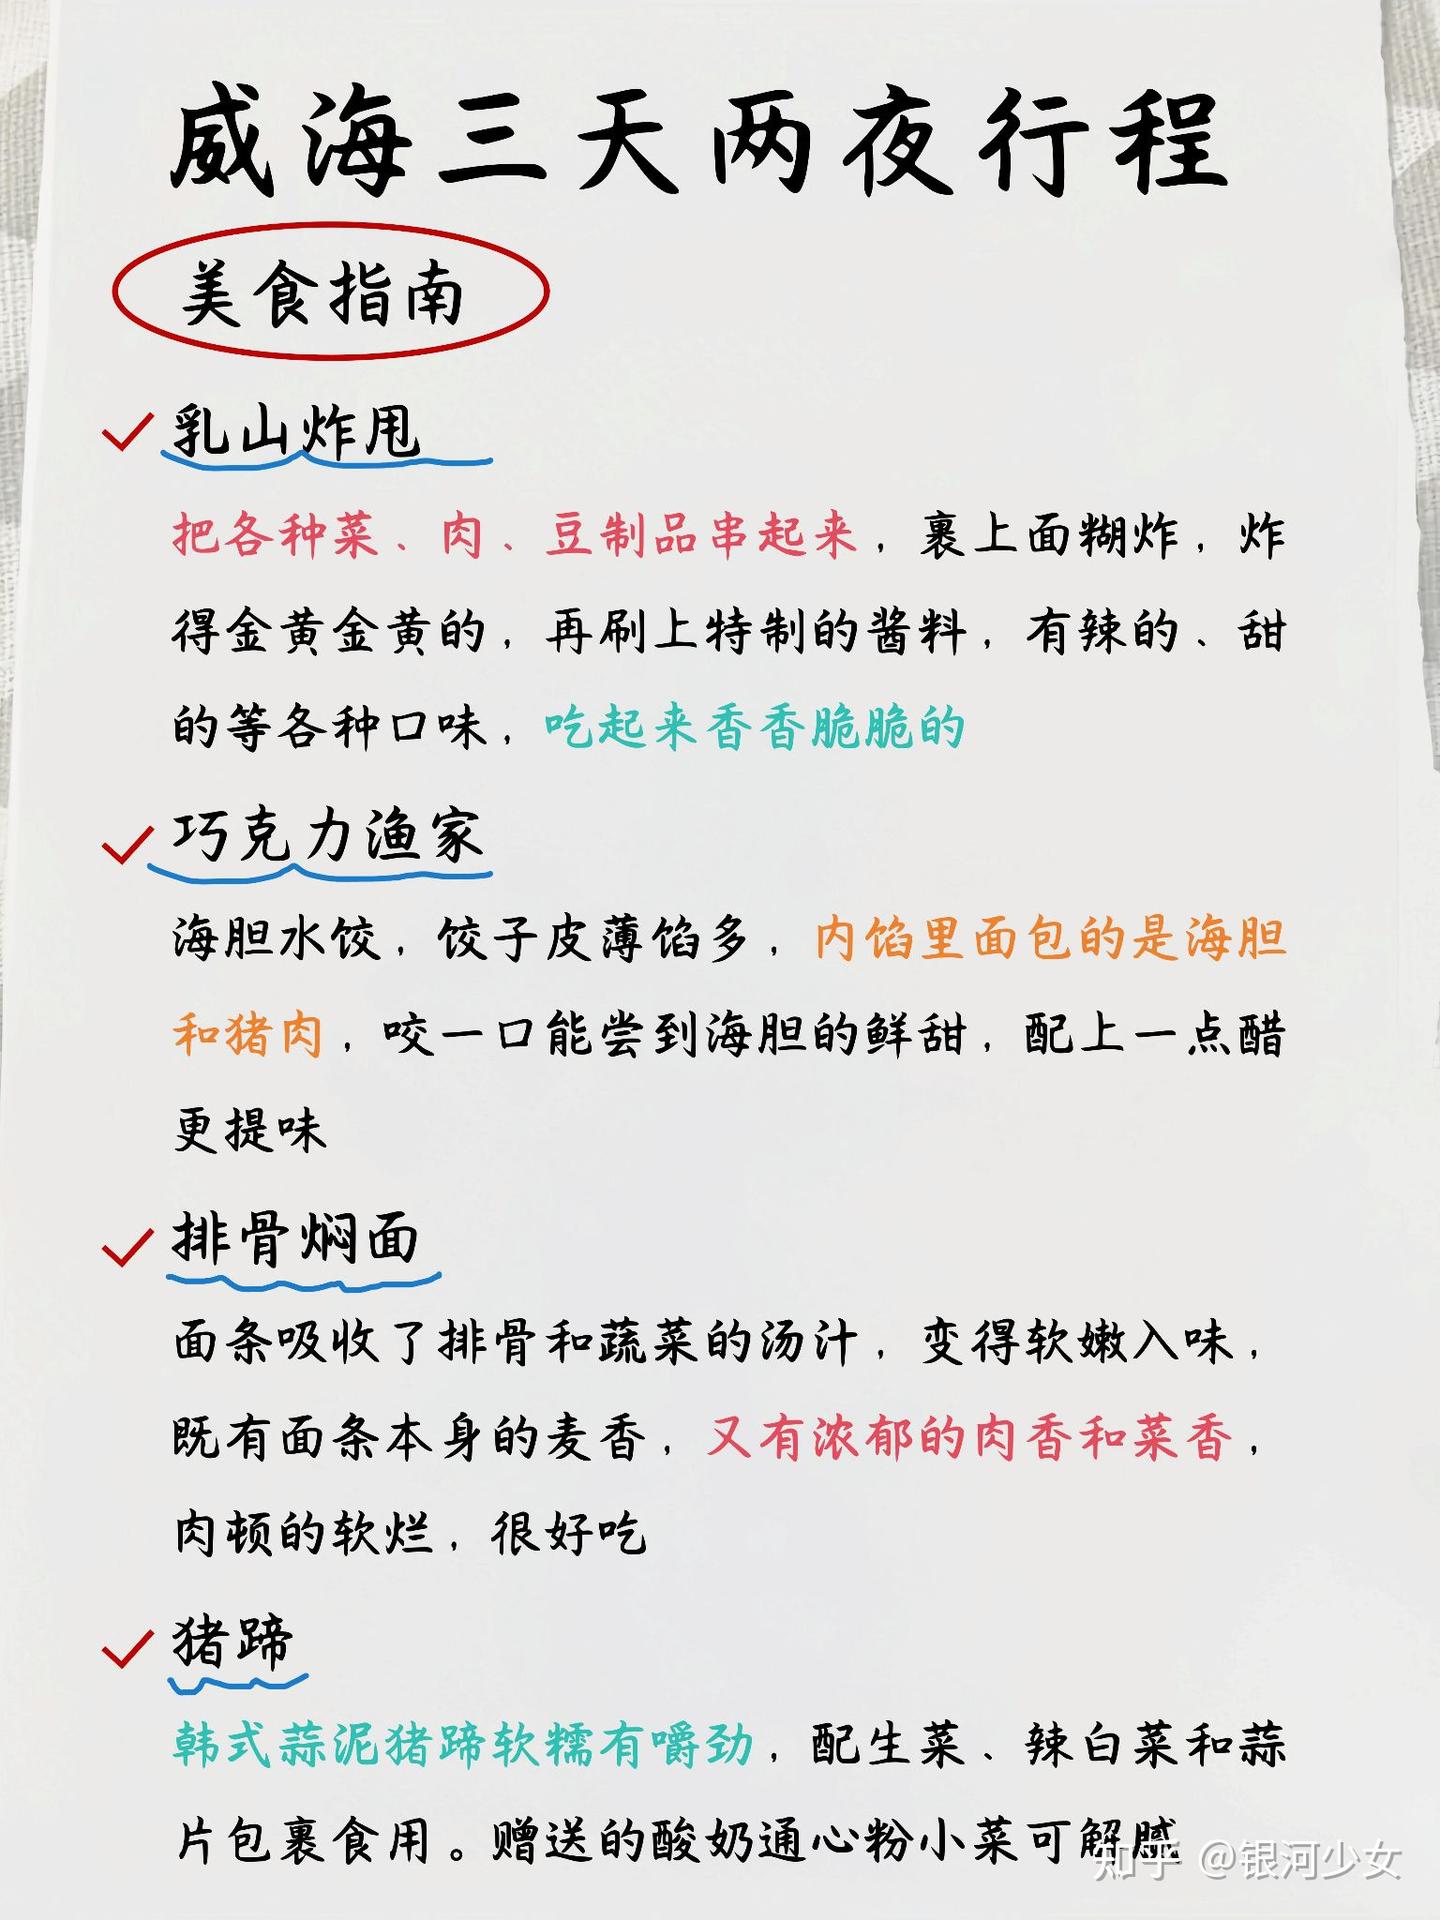 威海三天两夜行程
美食指南
乳山炸甩
把各种菜、肉、豆制品串起来，裹上面糊炸，炸
得金黄金黄的，再刷上特制的酱料，有辣的、甜
的等各种口味，吃起来香香脆脆的
巧克力渔家
海胆水饺，饺子皮薄馅多，内馅里面包的是海胆
和猪肉，咬一口能尝到海胆的鲜甜，配上一点醋
更提味
排骨焖面
面条吸收了排骨和蔬菜的汤汁，变得软嫩入味，
既有面条本身的麦香，又有浓郁的肉香和菜香，
肉顿的软烂，很好吃
猪蹄
韩式蒜泥猪蹄软糯有嚼劲，配生菜、辣白菜和蒜
片包裹食用。赠送的酸奶通心粉小菜可解腻
知乎 @银河少女